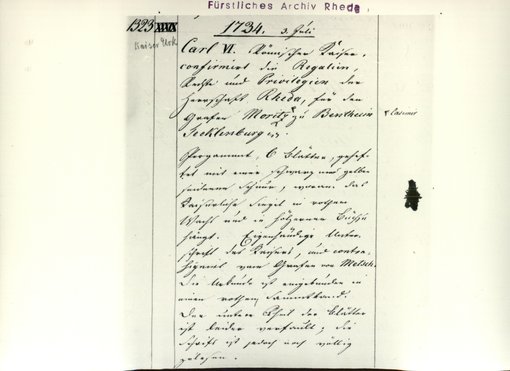 Fürstliches Archiv Rheda
1323
Kaiser Urk
1734. 3. Juli
Carl VI. Römischer Kaiser,
confirmirt die Regalien,
Rechte und Privilegien der
Herrschaft Rheda, für den
Grafen Moritz zu Bentheim
Casimir
Tecklenburg
Pergament, 6 Blätter, gehef-
tet mit einer schwarz und gelber
seidenen Schnur, woran das
Kaiserliche Siegel in rothem
Wachs und in hölzerner Büchse
hängt. Eigenhändige Unter-
schrift des Kaisers, und contra-
signirt vom Grafen von Metsch.
Die Urkunde ist eingebunden in
einen rothen Sammtband.
Der untere Theil der Blätter
ist leider verfault; die
Schrift ist jedoch noch völlig
zu lesen.